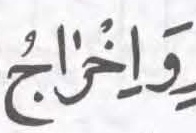 وَاِخْرَاجُ